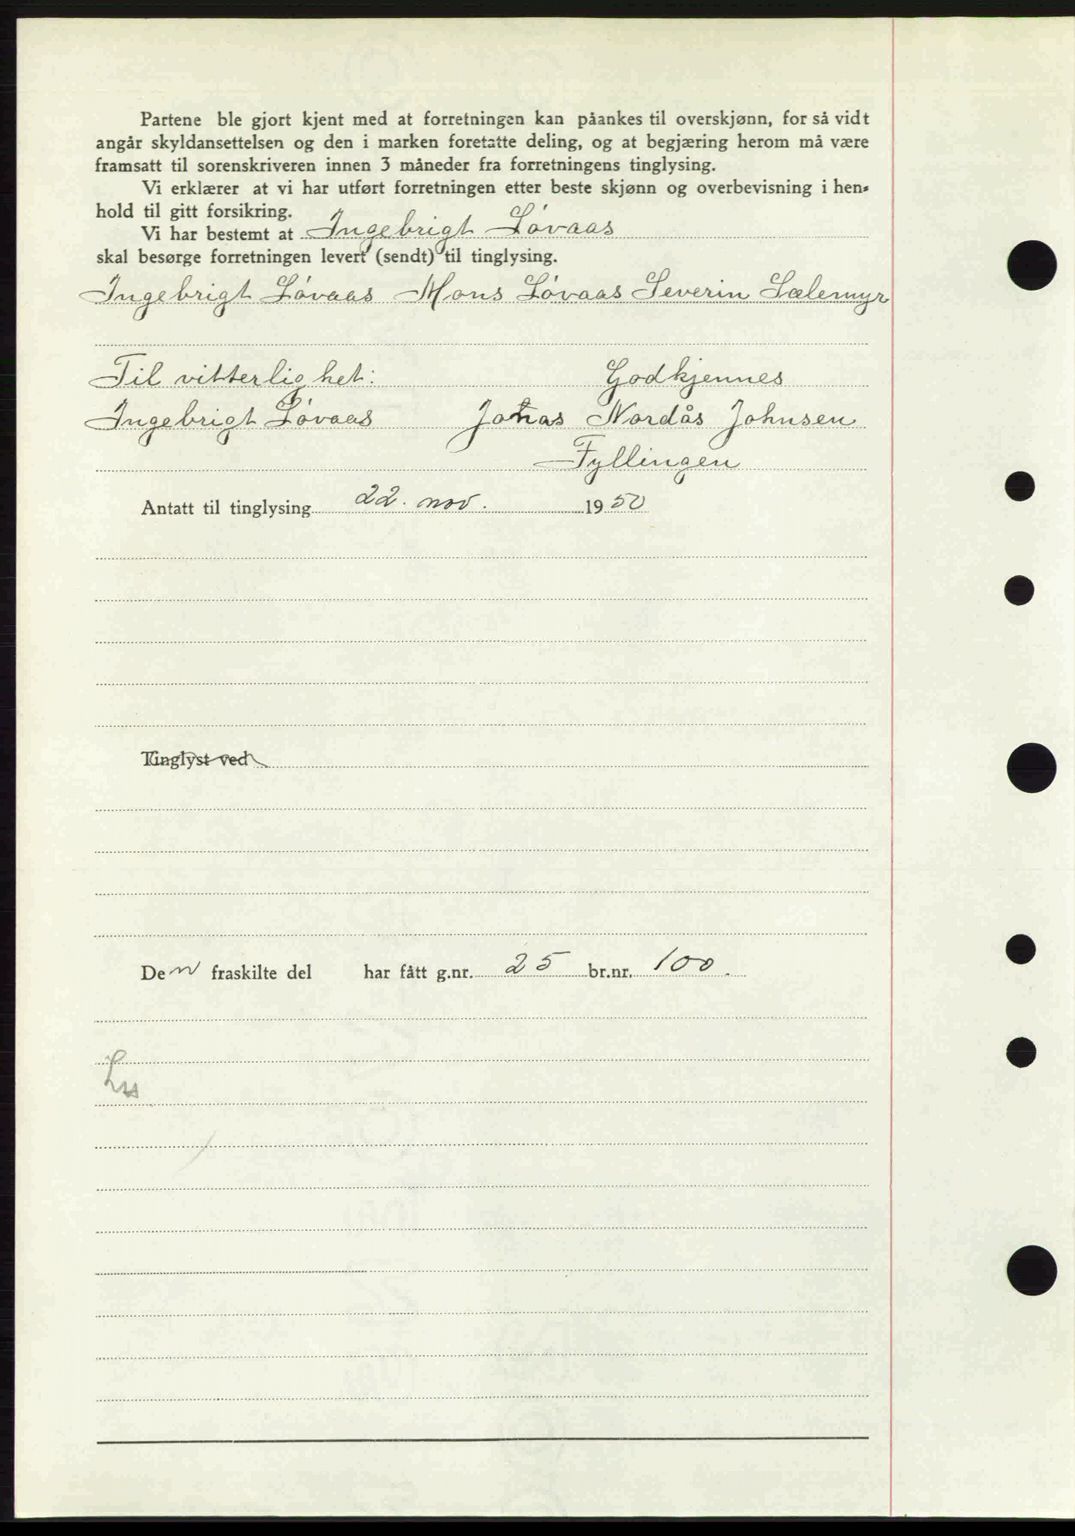 Partene ble gjort kjent med at forretningen kan påankes til overskjønn, for så vidt
angår skyldansettelsen og den i marken foretatte deling, og at begjæring herom må være
framsatt til sorenskriveren innen 3 måneder fra forretningens tinglysing.
Vi erklærer at vi har utført forretningen etter beste skjønn og overbevisning i hen-
hold til gitt forsikring.
Vi har bestemt at Ingebrigt Løvaas
skal besørge forretningen levert (sendt) til tinglysing.
Ingebrigt Løvaas Mons Løvaas Severin Sælemyr
Til vitterlighet: Godkjennes
Ingebrigt Løvaas Johas Nordås Johnsen
Fyllingen
Antatt til tinglysing 22. nov. 1950
Tinglyst ved
Den fraskilte del har fått g.nr. 25 br.nr. 100.